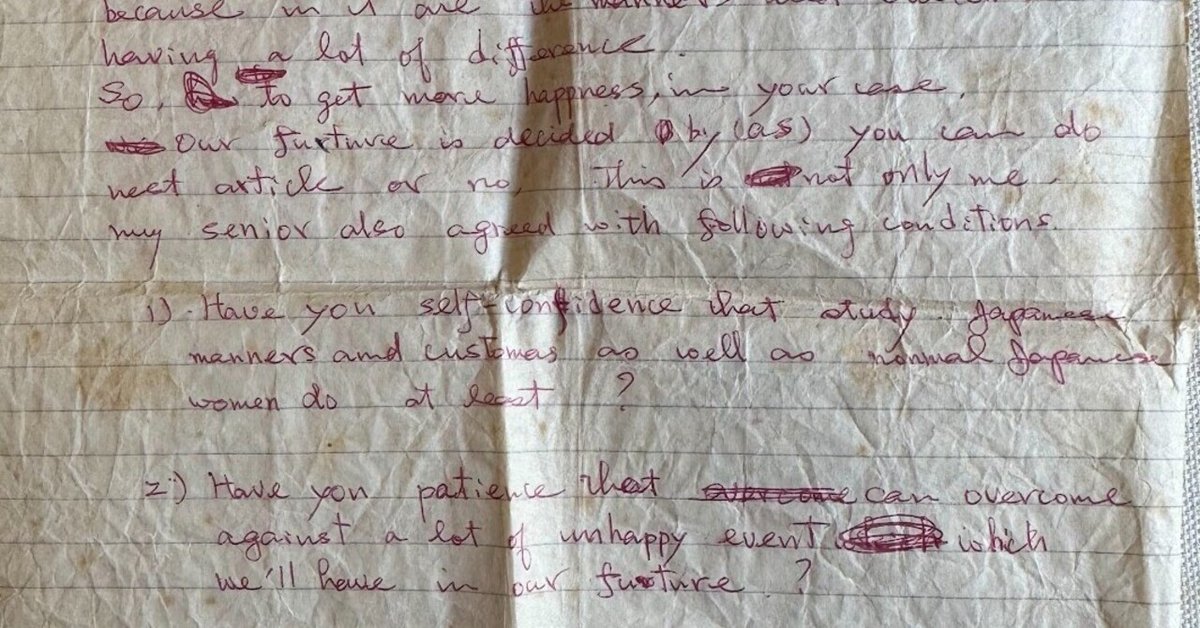 because in it are the manners
having a lot of difference.
So, to get more happness, in your case,
our furture is decided by (as) you can do
next article or no, This is not only me.
my senior also agreed with following conditions.
1) Have you self-confidence that study Japanese
manners and customas as well as normal Japanese
women do at least ?
2) Have you patience that overcome can overcome
against a lot of unhappy event which
we'll have in our furture ?